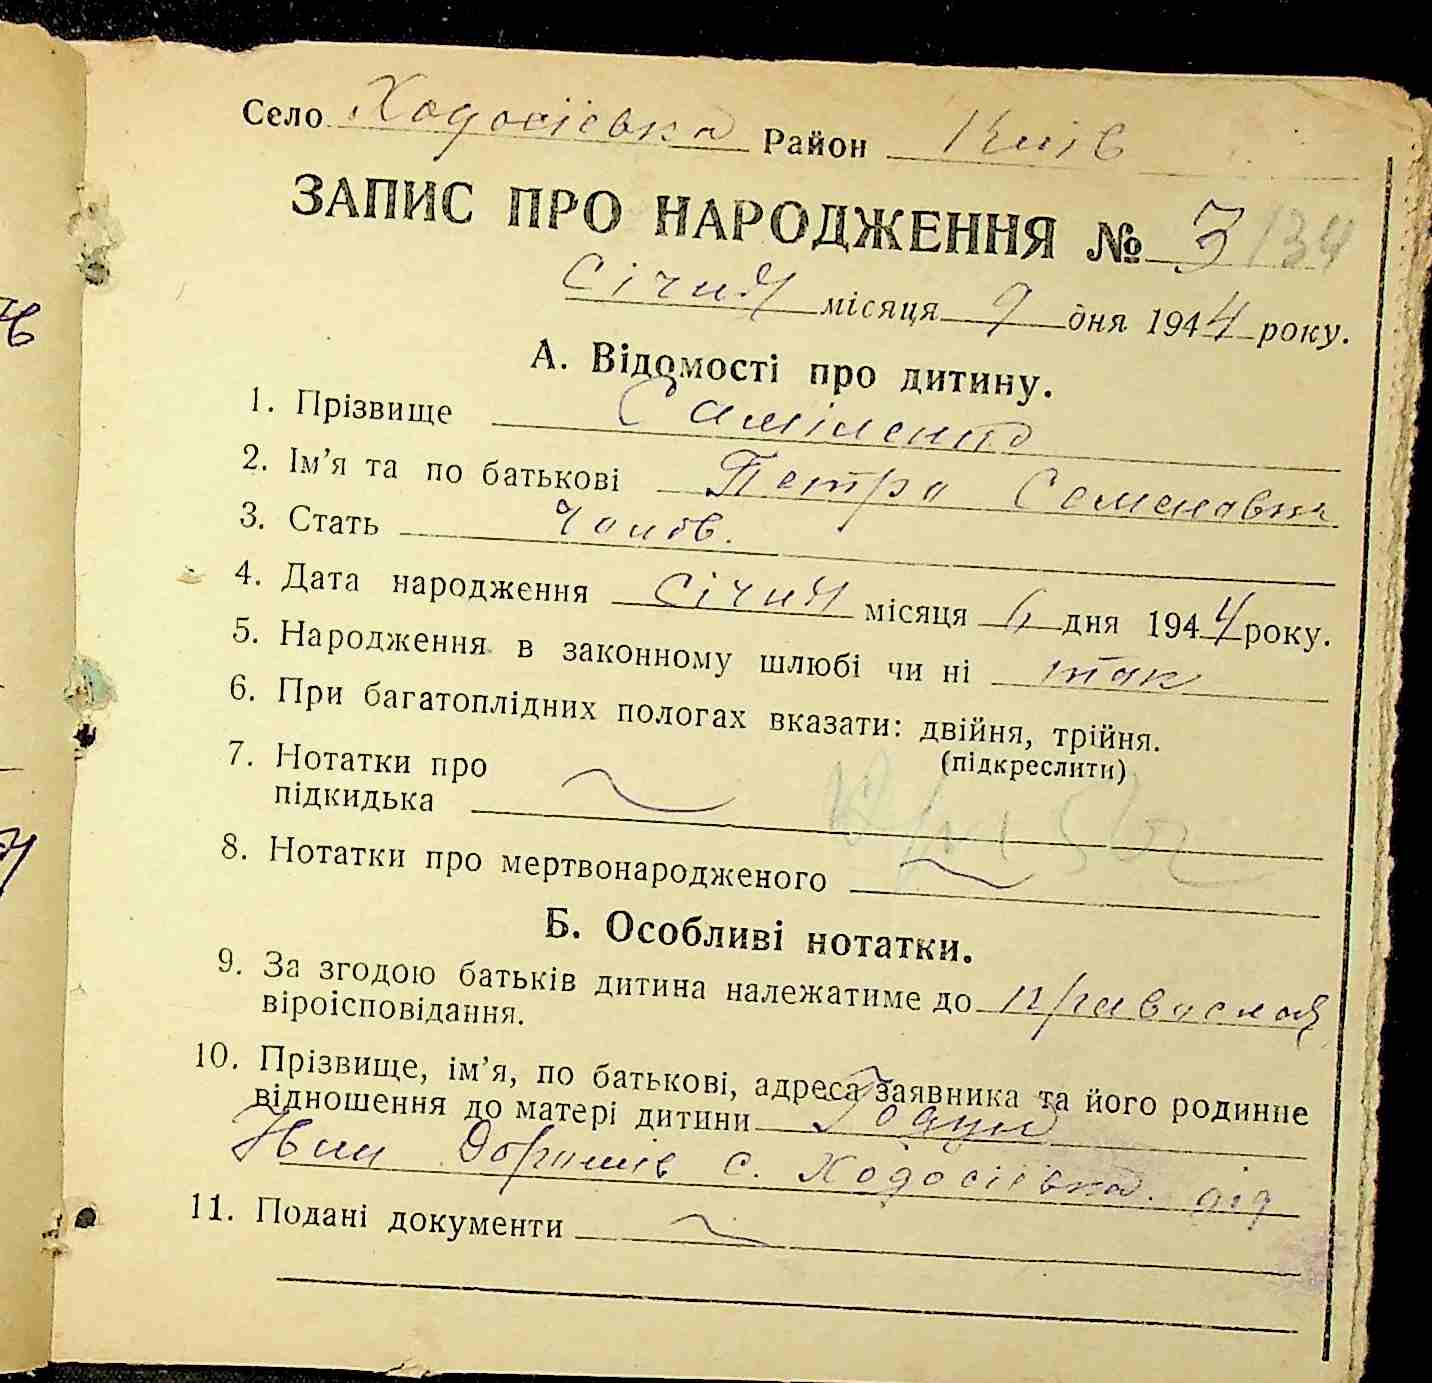 Село Ходосіївка Район Київ
ЗАПИС ПРО НАРОДЖЕННЯ № 3 /34
Січня місяця 9 дня 1944 року.
А. Відомості про дитину.
1. Прізвище Самійленко
2. Ім’я та по батькові Петро Семенович
3. Стать чолов.
4. Дата народження Січня місяця 6 дня 1944 року.
5. Народження в законному шлюбі чи ні так
6. При багатоплідних пологах вказати: двійня, трійня.
(підкреслити)
7. Нотатки про
підкидька
8. Нотатки про мертвонародженого
Б. Особливі нотатки.
9. За згодою батьків дитина належатиме до православ
віроісповідання.
10. Прізвище, ім’я, по батькові, адреса заявника та його родинне
відношення до матері дитини
Іван с. Ходосіївка. дід
11. Подані документи